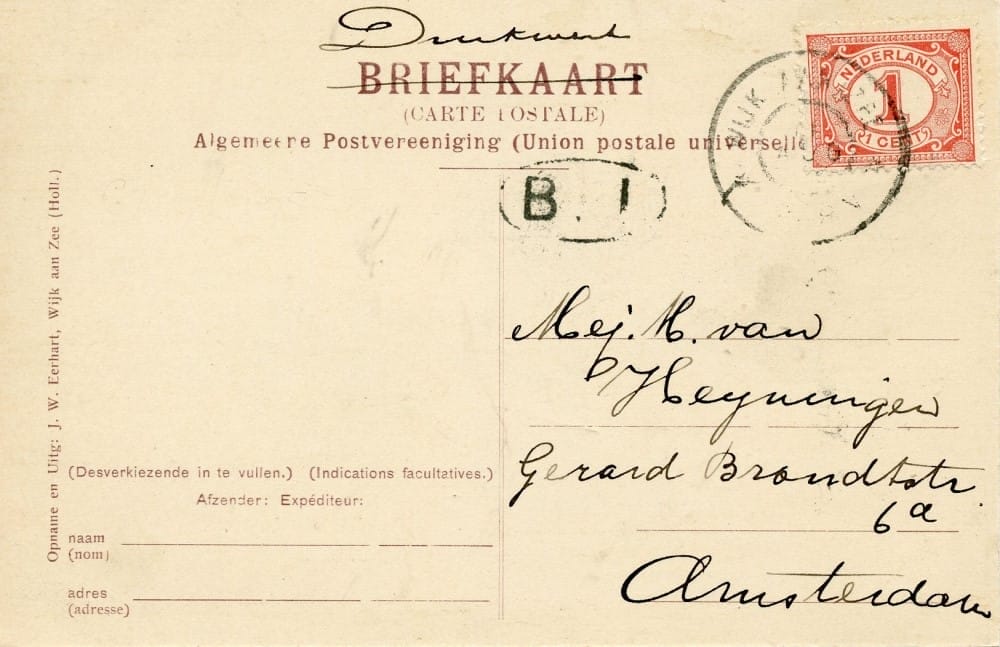 Drukwerk
BRIEFKAART
(CARTE POSTALE)
Algemeene Postvereeniging (Union postale universelle)
NEDERLAND
1
1 CENT
WIJK AAN
B. 1
Mej. M. van
Heyningen
Gerard Brandtstr.
6a
Amsterdam
Opname en Uitg: J. W. Eerhart, Wijk aan Zee (Holl.)
(Desverkiezende in te vullen.) (Indications facultatives.)
Afzender: Expéditeur:
naam
(nom)
adres
(adresse)